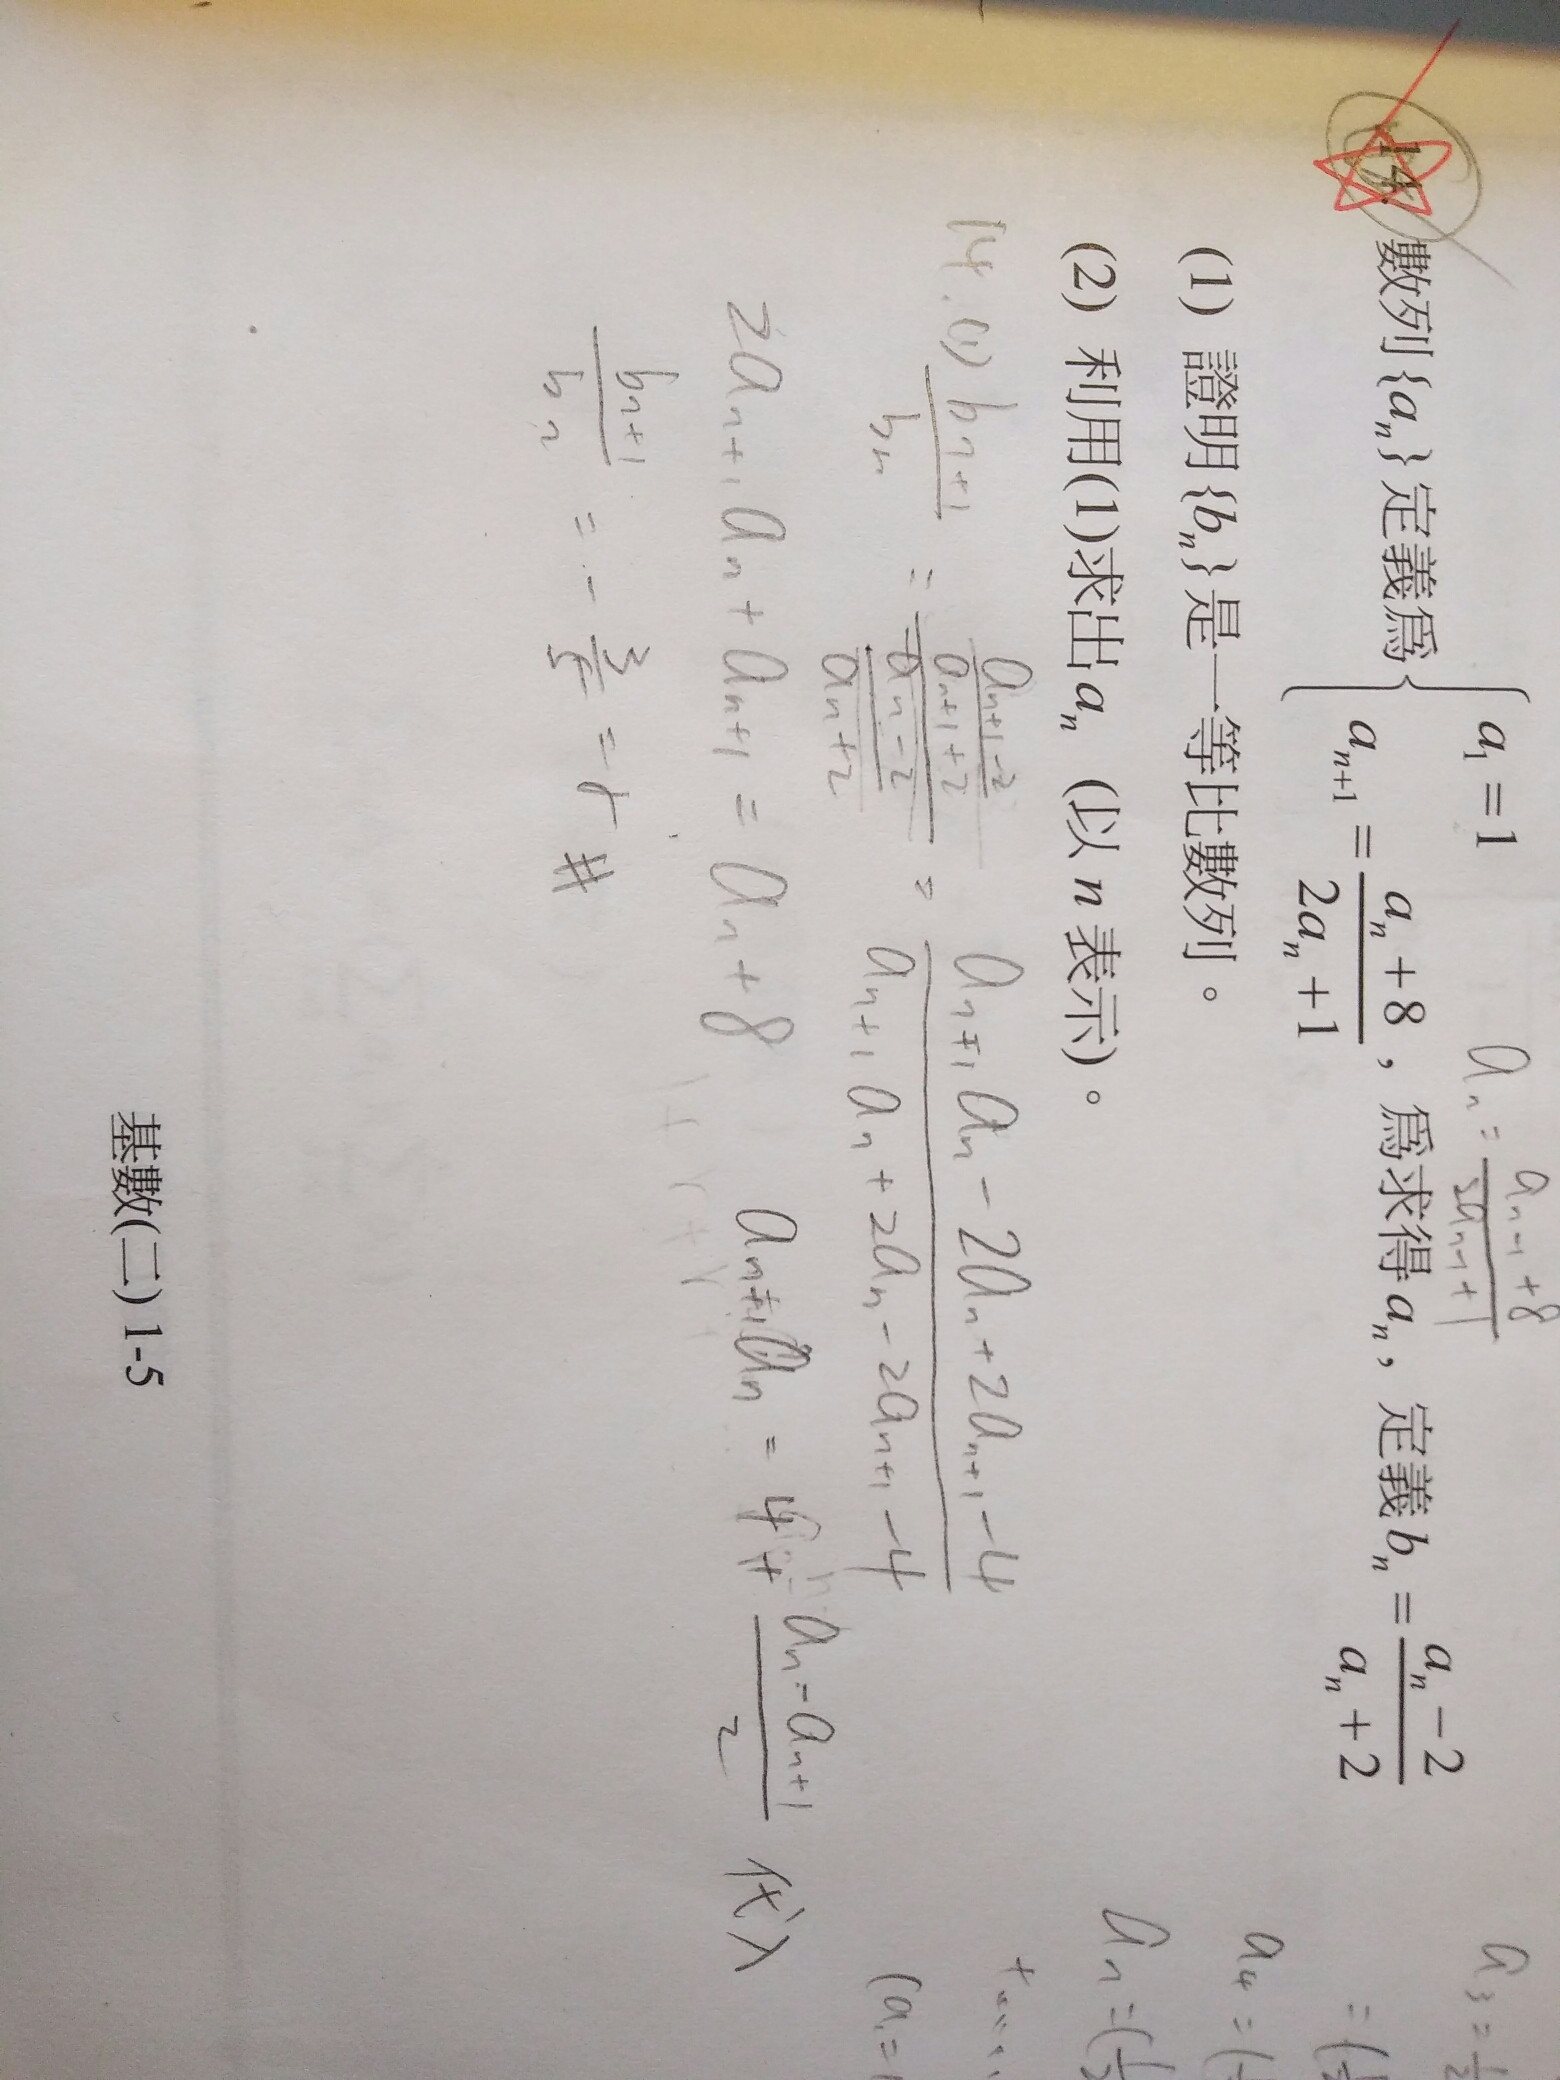 14. 數列{aₙ}定義為{a₁=1
aₙ₊₁=(aₙ+8)/(2aₙ+1),為求得aₙ,定義bₙ=(aₙ-2)/(aₙ+2)
aₙ=(aₙ₋₁+8)/(2aₙ₋₁+1)
(1) 證明{bₙ}是一等比數列。
(2) 利用(1)求出aₙ (以n表示)。
14.(1) bₙ₊₁/bₙ = ((aₙ₊₁-2)/(aₙ₊₁+2))/((aₙ-2)/(aₙ+2)) = (aₙ₊₁aₙ-2aₙ+2aₙ₊₁-4)/(aₙ₊₁aₙ+2aₙ-2aₙ₊₁-4)
2aₙ₊₁aₙ+aₙ₊₁=aₙ+8 aₙ₊₁aₙ=4+(aₙ-aₙ₊₁)/2 代入
bₙ₊₁/bₙ=-3/5=r #
a₃=1/2
=(1/2
a₄=(
aₙ=(1/2
+......
(a₁=1
基數(二) 1-5